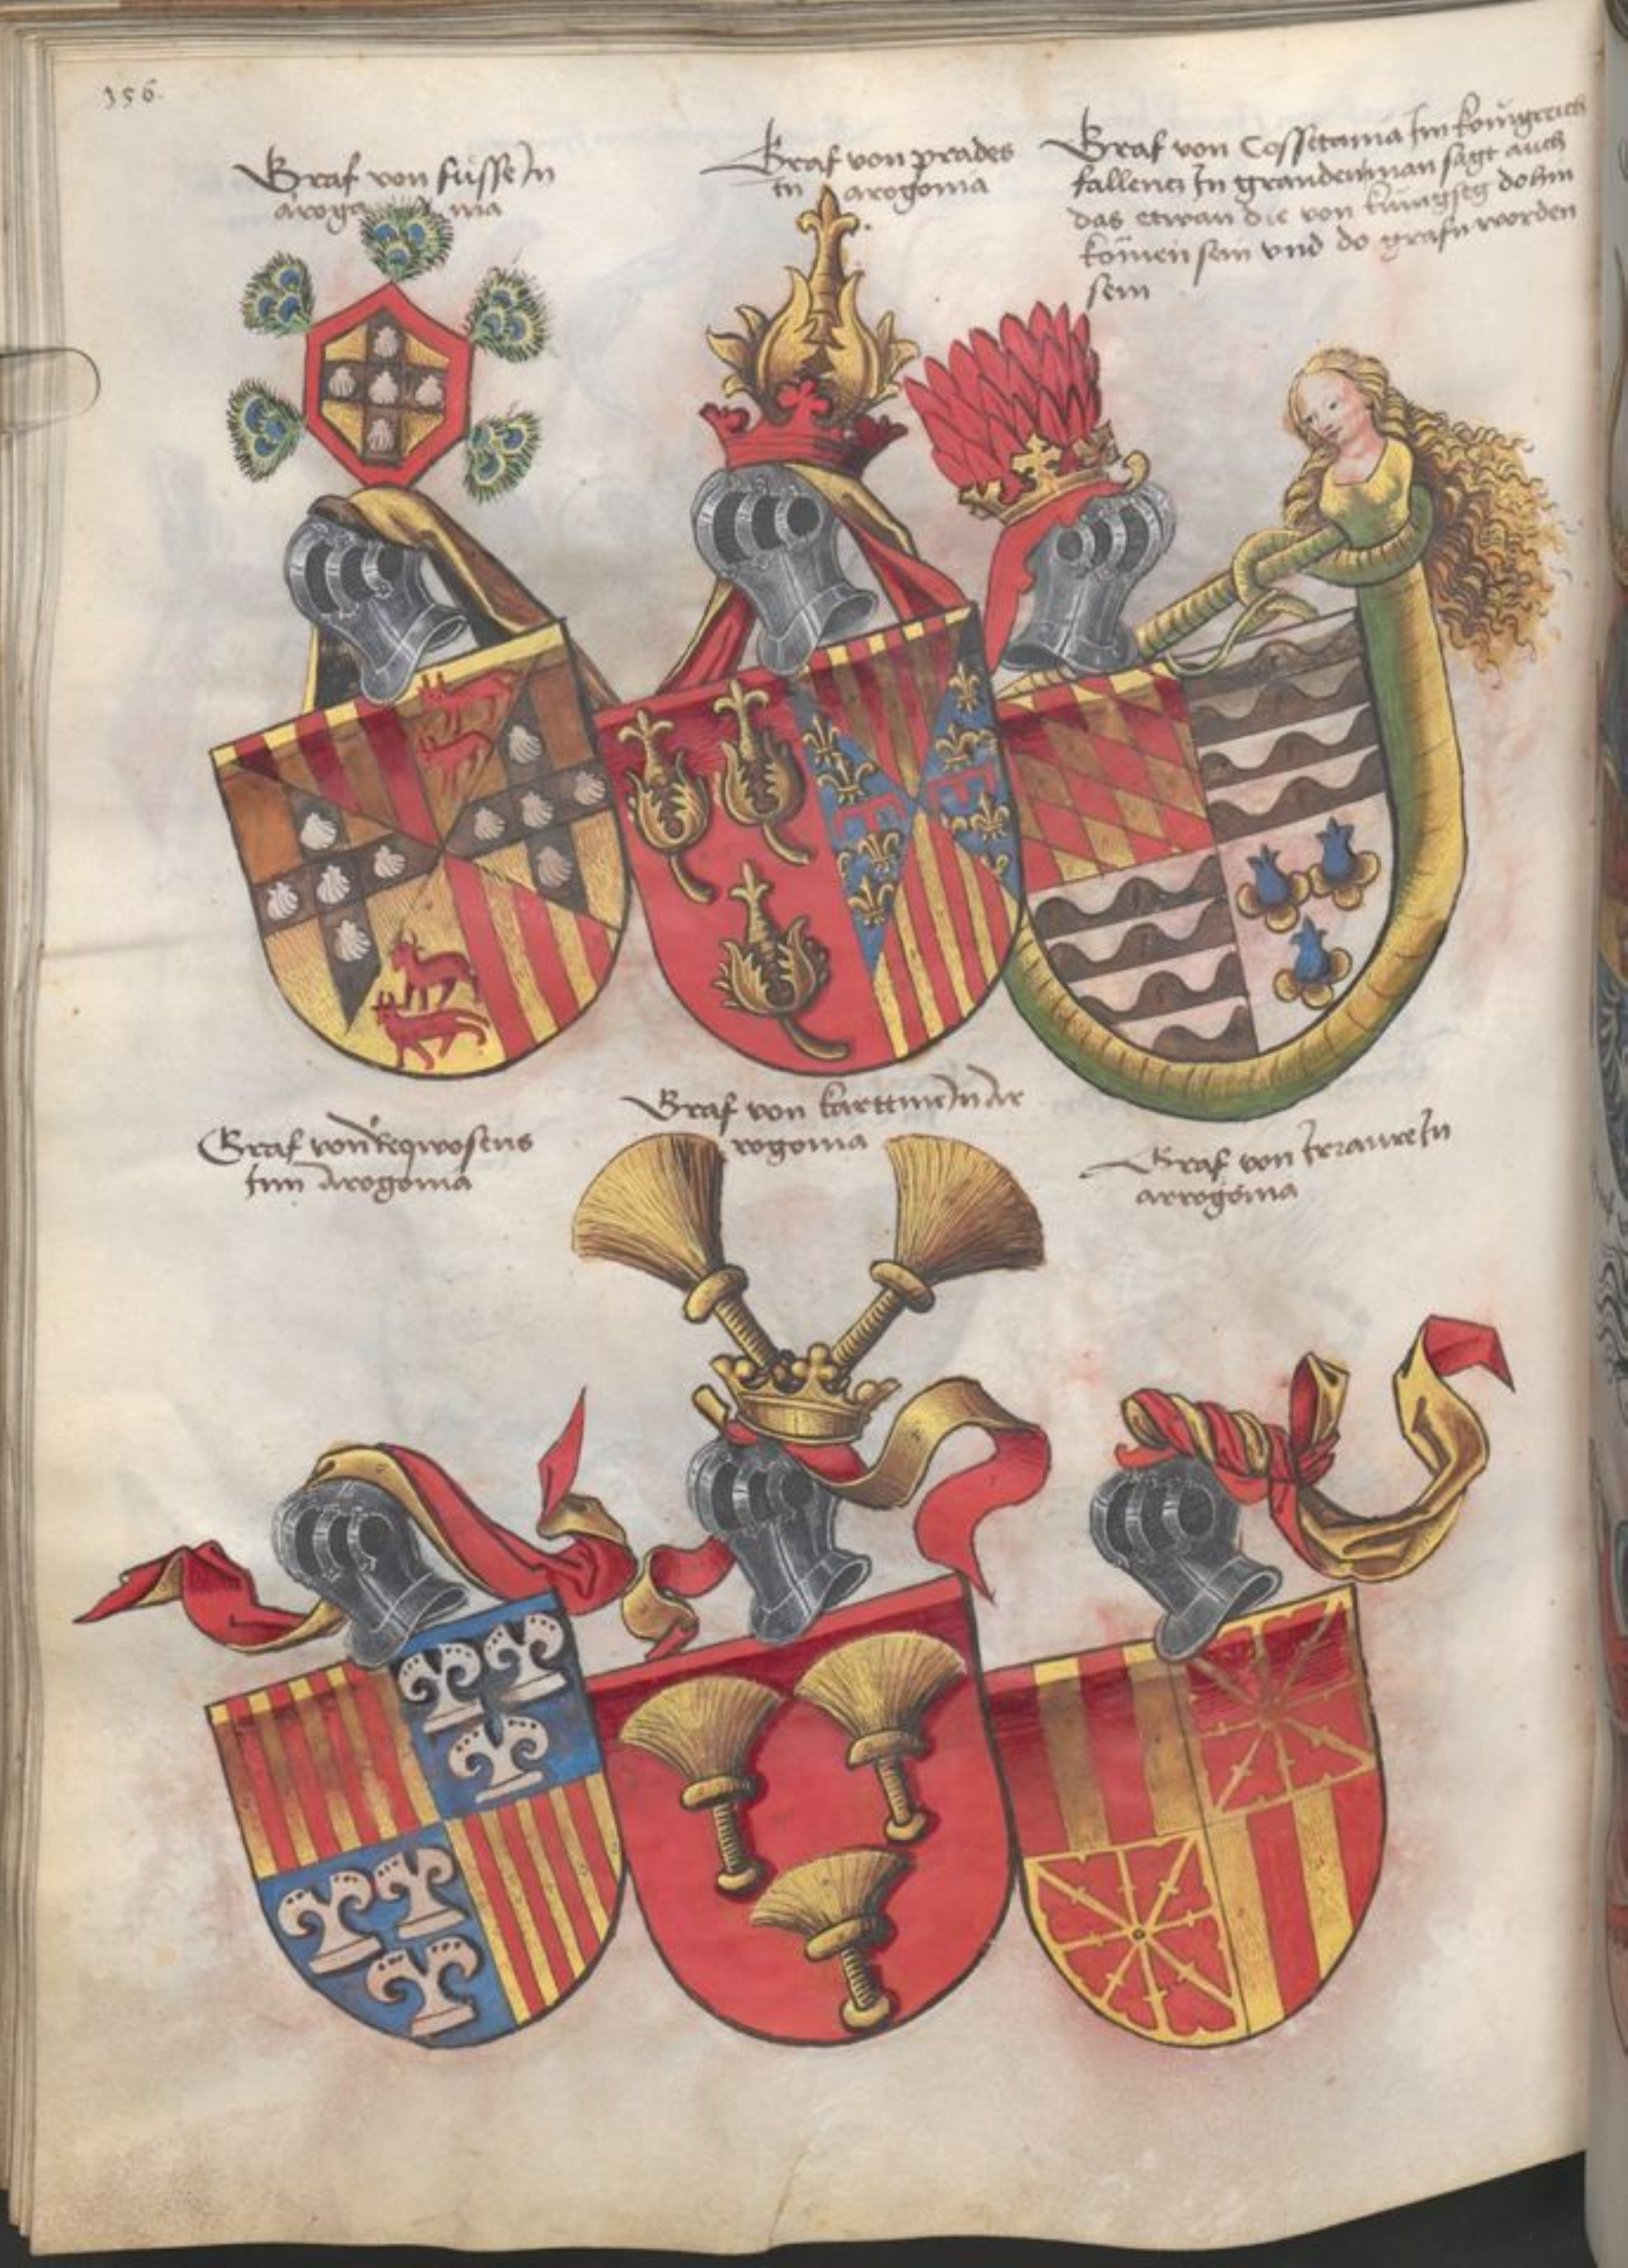 156.
Graf von füsse In
arogonia
Graf von prades
In arogonia
Graf von Cossetania Im künigreich
fallentz In granden man sagt auch
das etwan die von küngseg dohin
kömen sein vnd do grafn worden
sein
Graf von
Inn Arogonia
Graf von In Ar
rogonia
Graf von In
arrogonia